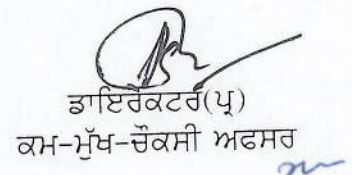 ਡਾਇਰੈਕਟਰ(ਪ੍ਰ)
ਕਮ-ਮੁੱਖ-ਚੌਕਸੀ ਅਫਸਰ